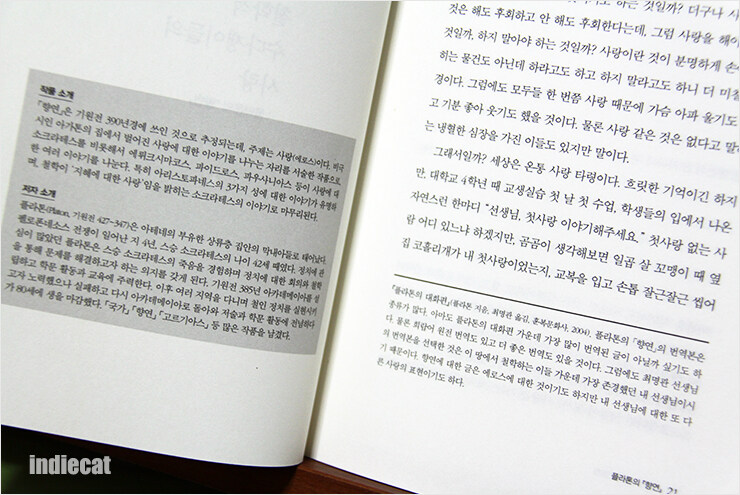 작품 소개
『향연』은 기원전 390년경에 쓰인 것으로 추정되는데, 주제는 사랑(에로스)이다. 비극
시인 아가톤의 집에서 벌어진 사랑에 대한 이야기를 나누는 자리를 서술한 작품으로,
소크라테스를 비롯해서 에뤼크시마코스, 파이드로스, 파우사니아스 등이 사랑에 대
한 여러 이야기를 나눈다. 특히 아리스토파네스의 3가지 성에 대한 이야기가 유명하
며, 철학이 '지혜에 대한 사랑'임을 밝히는 소크라테스의 이야기로 마무리된다.
저자 소개
플라톤(Platon, 기원전 427~347)은 아테네의 부유한 상류층 집안의 막내아들로 태어났다.
펠로폰네소스 전쟁이 일어난 지 4년, 스승 소크라테스의 나이 42세 때였다. 정치에 관
심이 많았던 플라톤은 스승 소크라테스의 죽음을 경험하며 정치에 대한 회의와 철학
을 통해 문제를 해결하고자 하는 의지를 갖게 된다. 기원전 385년 아카데메이아를 설
립하고 학문 활동과 교육에 주력한다. 이후 여러 지역을 다니며 철인 정치를 실현시키
고자 노력했으나 실패하고 다시 아카데메이아로 돌아와 저술과 학문 활동에 전념하다
가 80세에 생을 마감했다. 『국가』 『향연』 『고르기아스』 등 많은 작품을 남겼다.
하는 것일까? 더구나 사
것은 해도 후회하고 안 해도 후회한다는데, 그럼 사랑을 해야
것일까, 하지 말아야 하는 것일까? 사랑이란 것이 분명하게 손에
히는 물건도 아닌데 하라고도 하고 하지 말라고도 하니 더 미칠
경이다. 그럼에도 모두들 한 번쯤 사랑 때문에 가슴 아파 울기도
고 기분 좋아 웃기도 했을 것이다. 물론 사랑 같은 것은 없다고 말하
는 냉혈한 심장을 가진 이들도 있지만 말이다.
그래서일까? 세상은 온통 사랑 타령이다. 흐릿한 기억이긴 하지
만, 대학교 4학년 때 교생실습 첫 날 첫 수업, 학생들의 입에서 나온
자연스런 한마디 "선생님, 첫사랑 이야기해주세요." 첫사랑 없는 사
람 어디 있느냐 하겠지만, 곰곰이 생각해보면 일곱 살 꼬맹이 때 옆
집 코흘리개가 내 첫사랑이었는지, 교복을 입고 손톱 잘근잘근 씹어
『플라톤의 대화편』(플라톤 지음, 최명관 옮김, 훈복문화사, 2004). 플라톤의 『향연』의 번역본은
종류가 많다. 아마도 플라톤의 대화편 가운데 가장 많이 번역된 글이 아닐까 싶기도 하
다. 물론 희랍어 원전 번역도 있고 더 좋은 번역도 있을 것이다. 그럼에도 최명관 선생님
의 번역본을 선택한 것은 이 땅에서 철학하는 이들 가운데 가장 존경했던 내 선생님이시
기 때문이다. 향연에 대한 글은 에로스에 대한 것이기도 하지만 내 선생님에 대한 또 다
른 사랑의 표현이기도 하다.
플라톤의 『향연』 21
indiecat